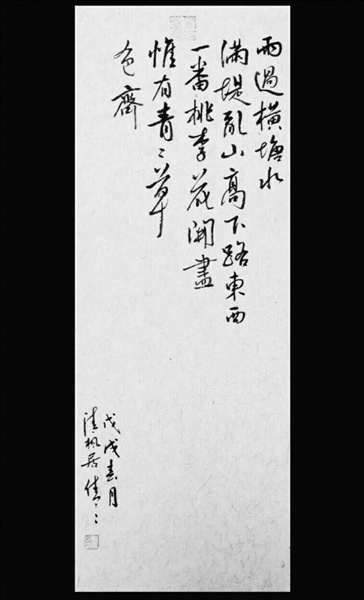 雨過橫塘水
滿堤亂山高下路東西
一番桃李花開盡
惟有青〻草
色齊
戊戌春月
清楓居佳〻